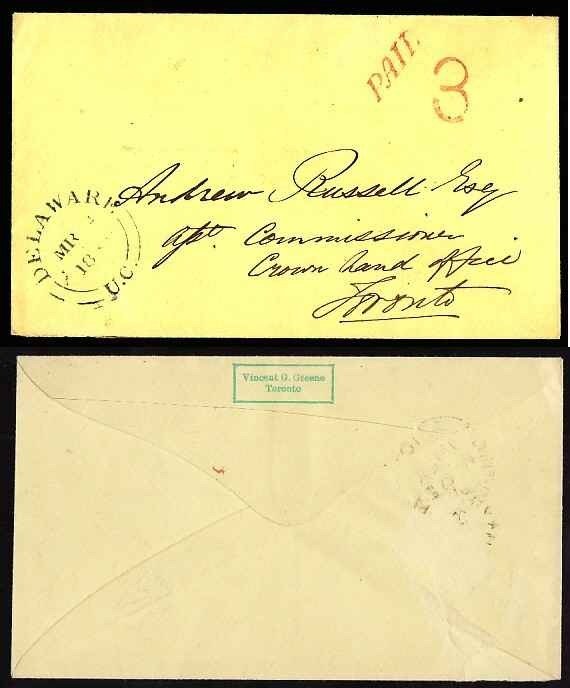 PAID
3
Andrew Russell Esq
Commissioner
Crown Land Office
Toronto
DELAWARE
MR
18
U.C.
Vincent G. Greene
Toronto